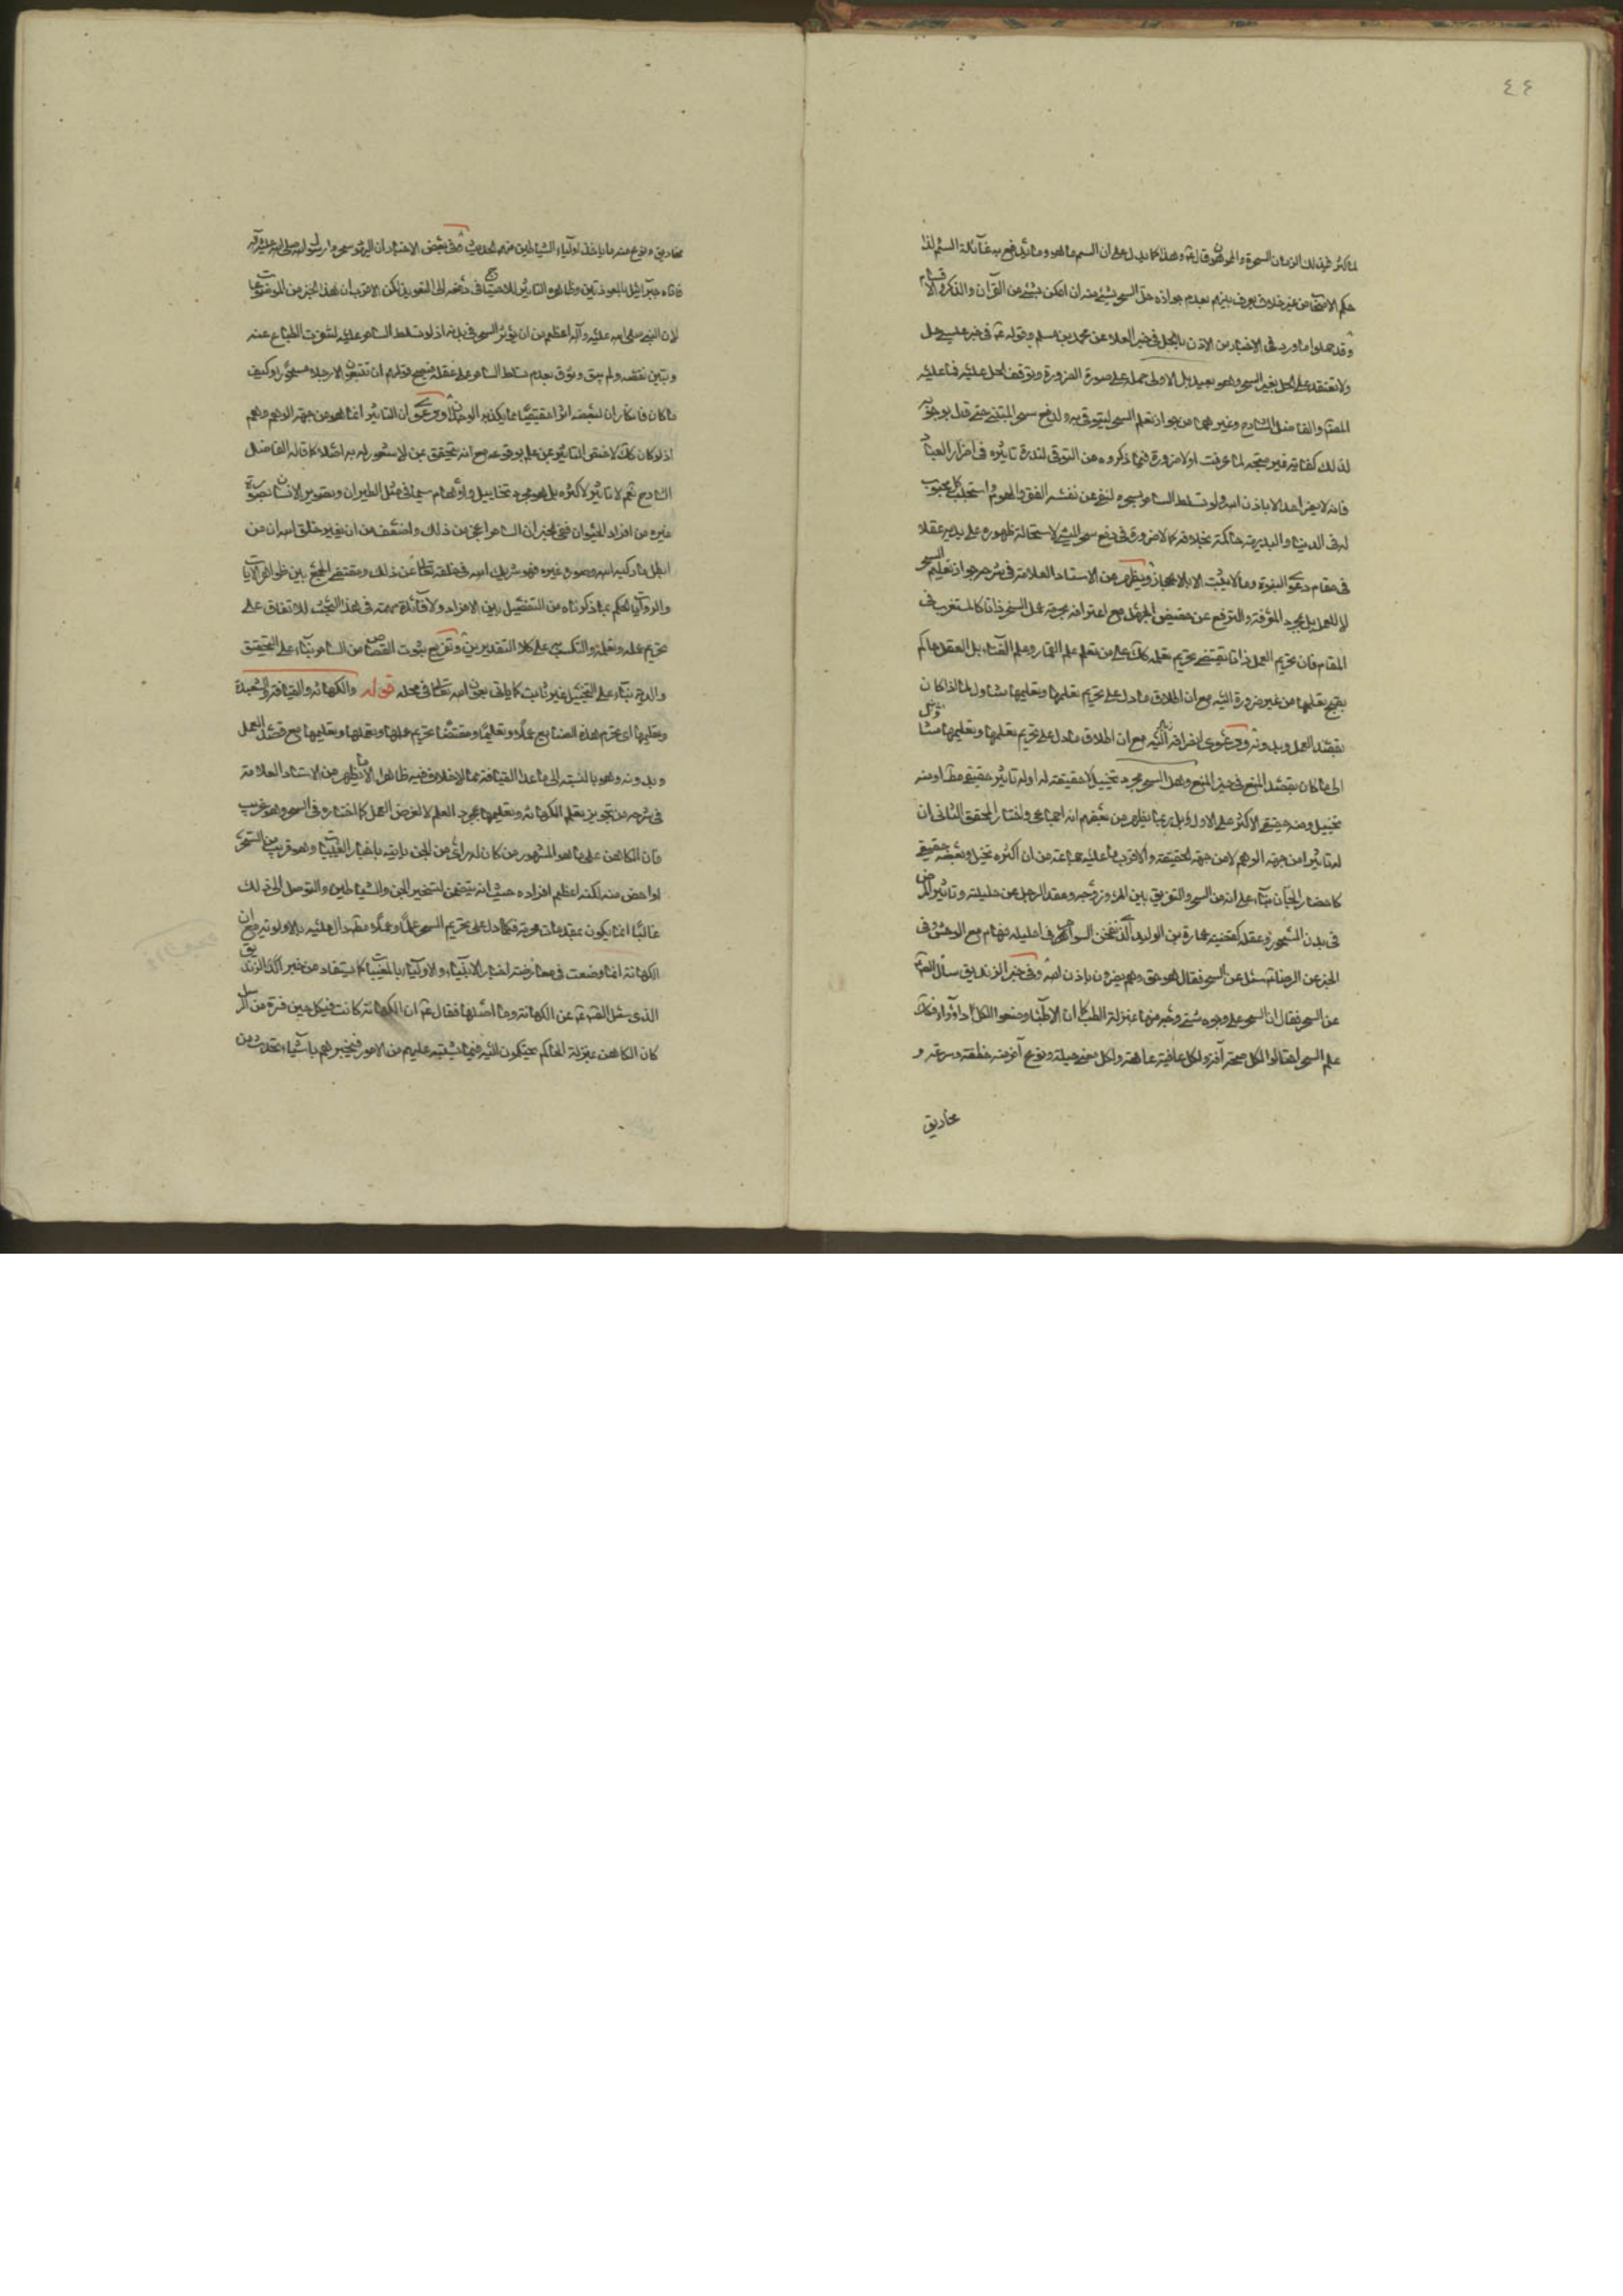 ٤٤
لما كثر فى ذلك الزمان السحرة والمموهون قال وهذا كما يدل على ان السحر ما هو وما يدفع به غائلة السحر لذا
حكم الاصحاب من غير خلاف يعرف بينهم بعدم جواز حل السحر بشئ منه ان امكن بشئ من القرآن والذكر والاقسام
وقد حملوا ما ورد فى الاخبار من الاذن بالحل فى خبر العلاء عن محمد بن مسلم وقوله فى خبر حل
ولا تعتقد على الحل بغير السحر وهو بعيد بل الاولى حمله على صورة الضرورة وتوقف الحل عليه فما عليه
المصنف والفاضل الشارح وغيرهما من جواز تعلم السحر ليتوقى به ولدفع سحر المتنبى حتى قال بوجوبه
لذلك كفاية غير متجه لما عرفت اولا ضرورة فيما ذكروه من التوقى لندرة تاثيره فى اضرار العباد
فانه لا يضر احدا الا باذن الله ولو تسلط الساحر بسحره لنفى عن نفسه الفقر والهموم واستجلب كل محبوب
له فى الدنيا والبديهة حاكمة بخلافه كما لا ضرورة فى دفع سحر المتنبى لاستحالة ظهوره على يديه عقلا
فى مقام دعوى النبوة وما لا يثبت الا بالاعجاز ويظهر من الاستاد العلامة فى شرحه جواز تعليم السحر
لا للعمل بل لمجرد المعرفة والترفع عن حضيض الجهل مع اعترافه بحرمة عمل السحر ذاتا كالمستغرب فى
المقام فان تحريم العمل ذاتا يقتضى تحريم تعلمه كذلك على من تعلم علم القمار وعلم الغناء بل العقل حاكم
بقبح تعلمها من غير ضرورة اليه مع ان اطلاق ما دل على تحريم تعلمها وتعليمها متناول لما اذا كان
بقصد العمل وبدونه ودعوى انصرافه اليه مع ان اطلاق ما دل على تحريم تعلمها وتعليمها
الى ما كان بقصد المنع فى حيز المنع وهل السحر مجرد تخييل لا حقيقة له او له تاثير حقيقى مطلقا او منه
تخييل ومنه حقيقى الاكثر على الاول بل ربما يظهر من بعضهم انه اجماعى واختار المحقق الثانى ان
له تاثيرا من جهة الوهم لا من جهة الحقيقة والاقرب ما عليه جماعة من ان اكثره تخيل وبعضه حقيقى
كاحضار الجان بناء على انه من السحر والتفريق بين المرء وزوجه وعقد الرجل عن حليلته وتاثير المرض
فى بدن المسحور وعقله كقضية عمارة بن الوليد الذى نفخن السواحر فى احليله فهام مع الوحش وفى
الخبر عن الرضا سئل عن السحر فقال هو حق وهم يضرون باذن الله وفى خبر الزنديق سأل الصادق
عن السحر فقال ان السحر على وجوه شتى وجه منها بمنزلة الطب كما ان الاطباء وضعوا لكل داء دواء فكذلك
علم السحر احتالوا لكل صحة آفة ولكل عافية عاهة ولكل معنى حيلة ونوع آخر منه خطفة وسرعة و
مخاريق
مخاريق ونوع منه ما ياخذ اولياء الشياطين منهم الحديث وفى بعض الاخبار ان اليهود سحروا رسول الله صلى الله عليه وآله
فاتاه جبرائيل بالمعوذتين وظاهره التاثير للاحتياج فى دفعه الى التعويذ لكن الاقرب ان هذا الخبر من الموضوعات
لان النبى صلى الله عليه وآله اعظم من ان يؤثر السحر فى بدنه اذ لو تسلط الساحر عليه لنفرت الطباع عنه
وتبين نقصه ولم يبق وثوق بعدم تسلط الساحر على عقله فيصح قولهم ان تتبعون الا رجلا مسحورا وكيف
ما كان فانكار ان لبعضه اثرا حقيقيا مما يكذبه الوجدان ودعوى ان التاثير انما هو من جهة الوهم وهم
اذ لو كان كذلك لاختص التاثير بمن علم بوقوعه مع انه يتحقق بمن لا شعور له به اصلا كما قاله الفاضل
الشارح نعم لا تاثير لاكثره بل هو مجرد تخاييل واوهام سيما فى مثل الطيران وتصوير الانسان بصورة
غيره من افراد الحيوان ففى الخبر ان الساحر اعجز من ذلك واضعف من ان يغير خلق الله ان من
ابطل ما ركبه الله وصوره غيره فهو شريك الله فى خلقه تعالى عن ذلك ومقتضى الجمع بين ظواهر الآيات
والروايات الحكم بما ذكرناه من التفصيل بين الافراد ولا فائدة مهمة فى هذا البحث للاتفاق على
تحريم عمله وتعلمه والتكسب على كلا التقديرين وتفريع ثبوت القصاص من الساحر بناء على التحقيق
والدية بناء على التخييل غير ثابت كما ياتى بعون الله تعالى فى محله قوله والكهانة والقيافة والشعبدة
وتعليمها اى تحرم هذه الصنايع عملا وتعليما ومقتضاه تحريم عملها وتعلمها وتعليمها مع قصد العمل
وبدونه وهو بالنسبة الى ما عدا القيافة مما لا خلاف فيه ظاهرا الا ما يظهر من الاستاد العلامة
فى شرحه من تجويز تعلم الكهانة وتعليمها لمجرد العلم لا لغرض العمل كما اختاره فى السحر وهو غريب
فان الكاهن على ما هو المشهور من كان له رائى من الجن ياتيه باخبار الغيبات وهو قريب من السحر
او اخص منه لكنه اعظم افراده حيث انه يتضمن تسخير الجن والشياطين والتوصل الى ذلك
غالبا انما يكون بمقدمات محرمة فما دل على تحريم السحر علما وعملا دال عليه بالاولوية مع ان
الكهانة انما وضعت فى معارضة اخبار الانبياء والاولياء بالمغيبات كما يستفاد من خبر الزنديق
الذى سئل الصادق عن الكهانة وما اصلها فقال ان الكهانة كانت فى كل حين فترة من الرسل
كان الكاهن بمنزلة الحاكم يحتكمون اليه فيما يشتبه عليهم من الامور فيخبرهم باشياء تحدث من